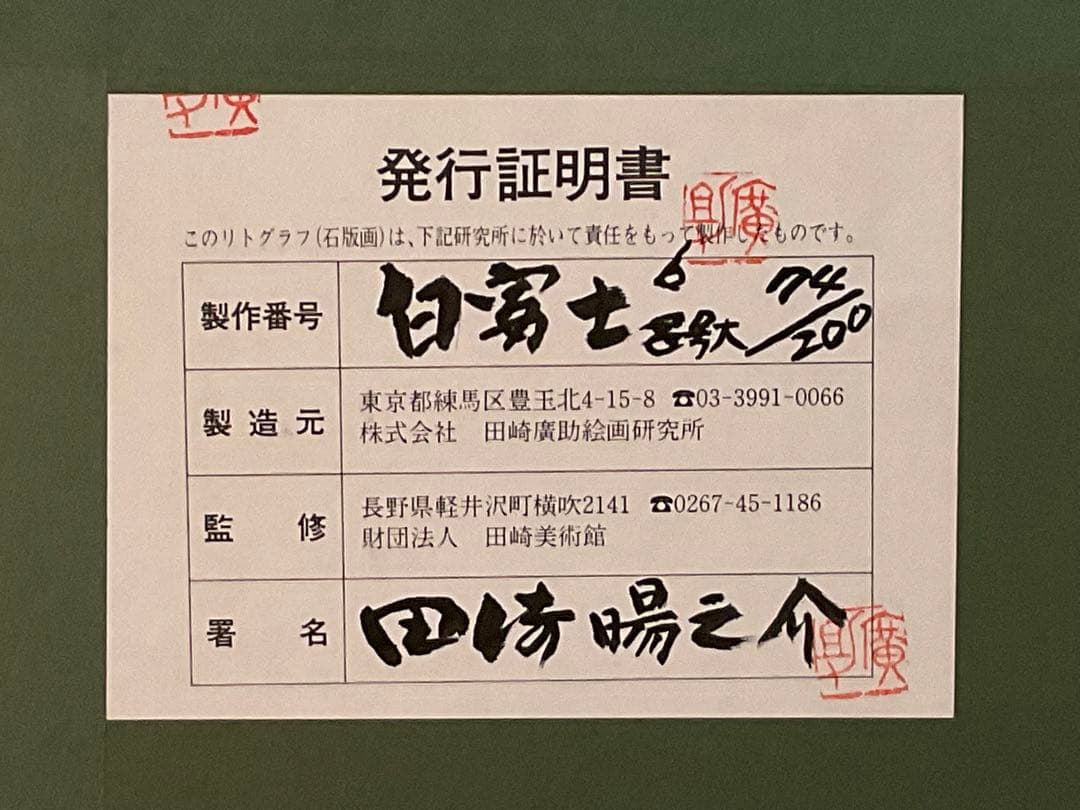 発行証明書
このリトグラフ(石版画)は、下記研究所に於いて責任をもって製作したものです。
製作番号 白富士 6号大 74/200
製造元 東京都練馬区豊玉北4-15-8 ☎03-3991-0066
株式会社 田崎廣助絵画研究所
監修 長野県軽井沢町横吹2141 ☎0267-45-1186
財団法人 田崎美術館
署名 田崎暘之介